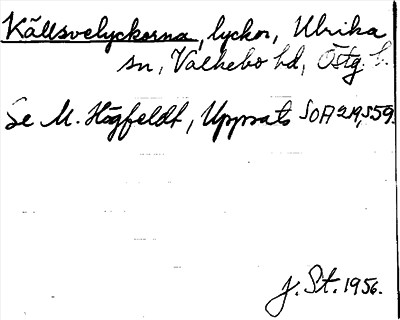 Källsvelyckorna, lyckor, Ulrika
sn, Valkebo hd, Östg. l.
Se M. Högfeldt, Uppsats SOA 219, s 59.
J. St. 1956.